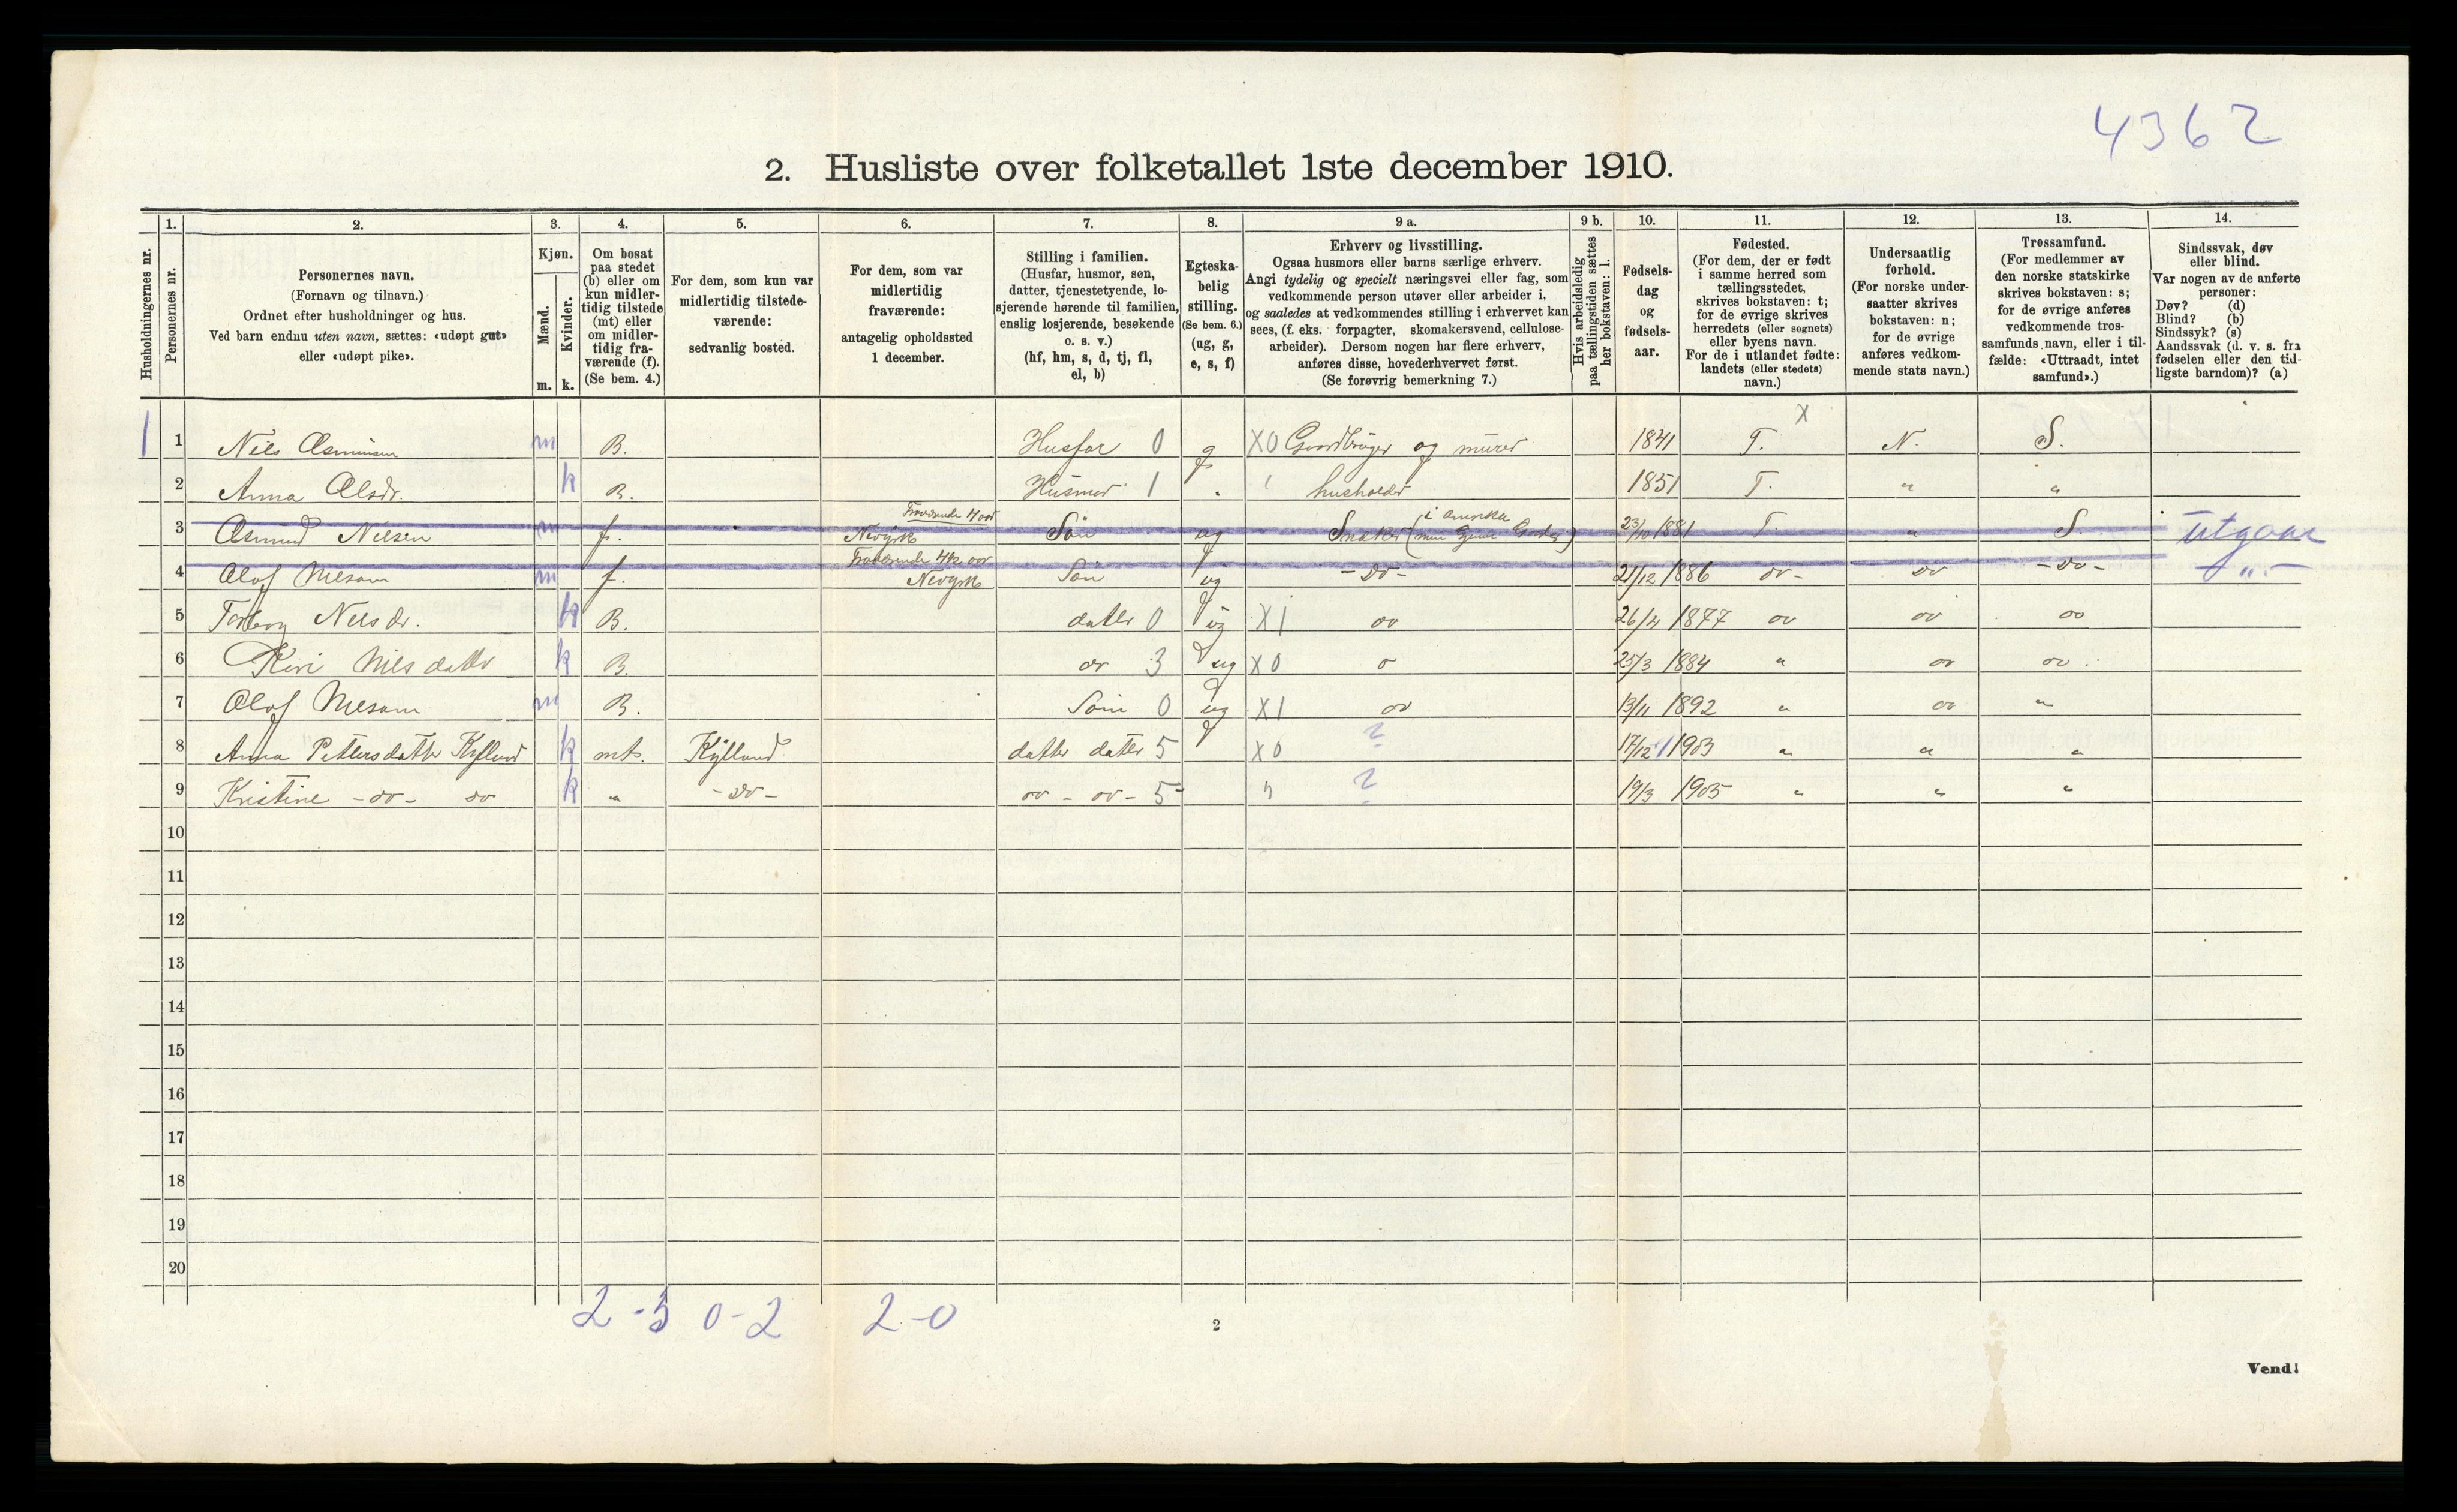 4362
2. Husliste over folketallet 1ste december 1910.
Husholdningernes nr.
1.
Personernes nr.
2.
Personernes navn.
(Fornavn og tilnavn.)
Ordnet efter husholdninger og hus.
Ved barn endnu uten navn, sættes: «udøpt gut»
eller «udøpt pike».
3.
Kjøn.
Mænd.
Kvinder.
m. k.
4.
Om bosat
paa stedet
(b) eller om
kun midler-
tidig tilstede
(mt) eller
om midler-
tidig fra-
værende (f).
(Se bem. 4.)
5.
For dem, som kun var
midlertidig tilstede-
værende:
sedvanlig bosted.
6.
For dem, som var
midlertidig
fraværende:
antagelig opholdssted
1 december.
7.
Stilling i familien.
(Husfar, husmor, søn,
datter, tjenestetyende, lo-
sjerende hørende til familien,
enslig losjerende, besøkende
o. s. v.)
(hf, hm, s, d, tj, fl,
el, b)
8.
Egteska-
belig
stilling.
(Se bem. 6.)
(ug, g,
e, s, f)
9 a.
Erhverv og livsstilling.
Ogsaa husmors eller barns særlige erhverv.
Angi tydelig og specielt næringsvei eller fag, som
vedkommende person utøver eller arbeider i,
og saaledes at vedkommendes stilling i erhvervet kan
sees, (f. eks. forpagter, skomakersvend, cellulose-
arbeider). Dersom nogen har flere erhverv,
anføres disse, hovederhvervet først.
(Se forøvrig bemerkning 7.)
9 b.
Hvis arbeidsledig
paa tællingstiden sættes
her bokstaven: l.
10.
Fødsels-
dag
og
fødsels-
aar.
11.
Fødested.
(For dem, der er født
i samme herred som
tællingsstedet,
skrives bokstaven: t;
for de øvrige skrives
herredets (eller sognets)
eller byens navn.
For de i utlandet fødte:
landets (eller stedets)
navn.)
12.
Undersaatlig
forhold.
(For norske under-
saatter skrives
bokstaven: n;
for de øvrige
anføres vedkom-
mende stats navn.)
13.
Trossamfund.
(For medlemmer av
den norske statskirke
skrives bokstaven: s;
for de øvrige anføres
vedkommende tros-
samfunds navn, eller i til-
fælde: «Uttraadt, intet
samfund».)
14.
Sindssvak, døv
eller blind.
Var nogen av de anførte
personer:
Døv? (d)
Blind? (b)
Sindssyk? (s)
Aandssvak (d. v. s. fra
fødselen eller den tid-
ligste barndom)? (a)
X
1 1 Nils m B. Husfar 0 g X0 og murer 1841 T. N. S.
2 Anna Olsdr. k B. Husmor 1 " husholder 1851 T. " "
3 Osmund Nilsen m f. Nevyrk Sön ug i Amerika 23/10 1881 T. " S. utgaar
4 Olof m f. Nevyrk Sön ug -do- 21/12 1886 do- do -do- -"-
5 Nilsdr. k B. datter 0 ug X1 do 26/4 1877 do do do
6 Nilsdatter k B. do 3 ug X0 25/3 1884 " do do
7 Olof m B. Sön 0 ug X1 do 13/11 1892 " do "
8 Anna Pettersdatter Kylland k mt. Kylland datter datter 5 X0 ? 17/12 1903 " " "
9 Kristine -do- do k " -do- do - do- 5 ? 19/3 1905 " " "
10
11
12
13
14
15
16
17
18
19
20
2-5 0-2 2-0
2
Vend!